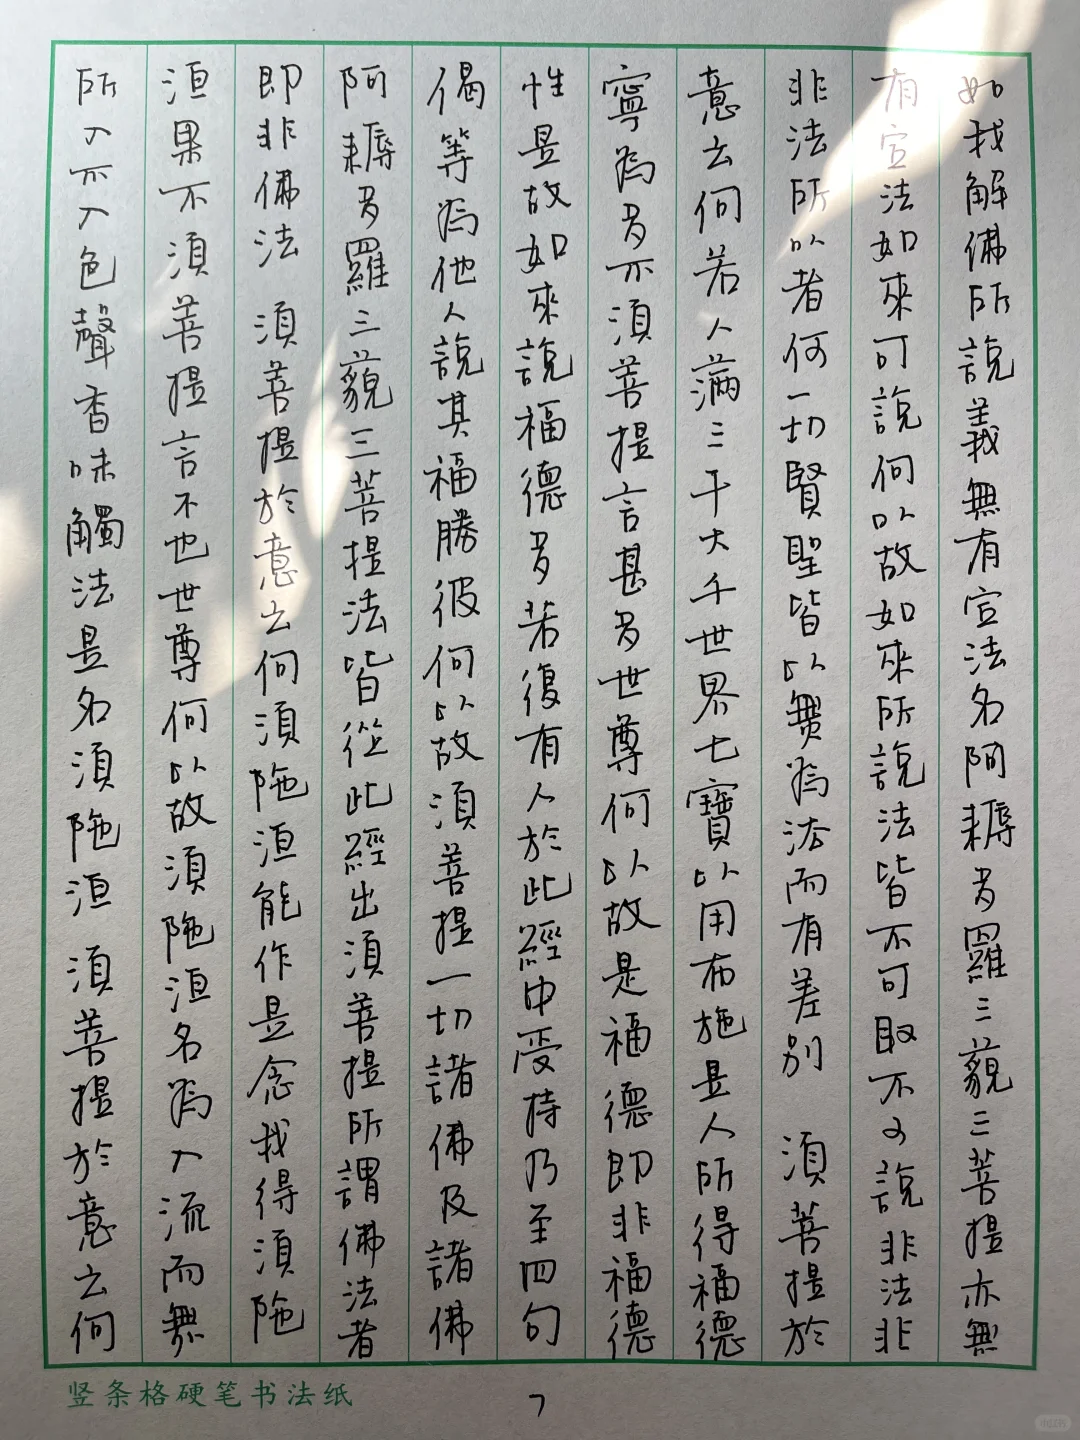 如我解佛所說義無有宣法名阿耨多羅三藐三菩提亦無
有宣法如來可說何以故如來所說法皆不可取不可說非法非
非法所以者何一切賢聖皆以無為法而有差別 須菩提於
意云何若人滿三千大千世界七寶以用布施是人所得福德
寧為多不須菩提言甚多世尊何以故是福德即非福德
性是故如來說福德多若復有人於此經中受持乃至四句
偈等為他人說其福勝彼何以故須菩提一切諸佛及諸佛
阿耨多羅三藐三菩提法皆從此經出須菩提所謂佛法者
即非佛法 須菩提於意云何須陁洹能作是念我得須陁
洹果不須菩提言不也世尊何以故須陁洹名為入流而無
所入不入色聲香味觸法是名須陁洹 須菩提於意云何
竖条格硬笔书法纸
7